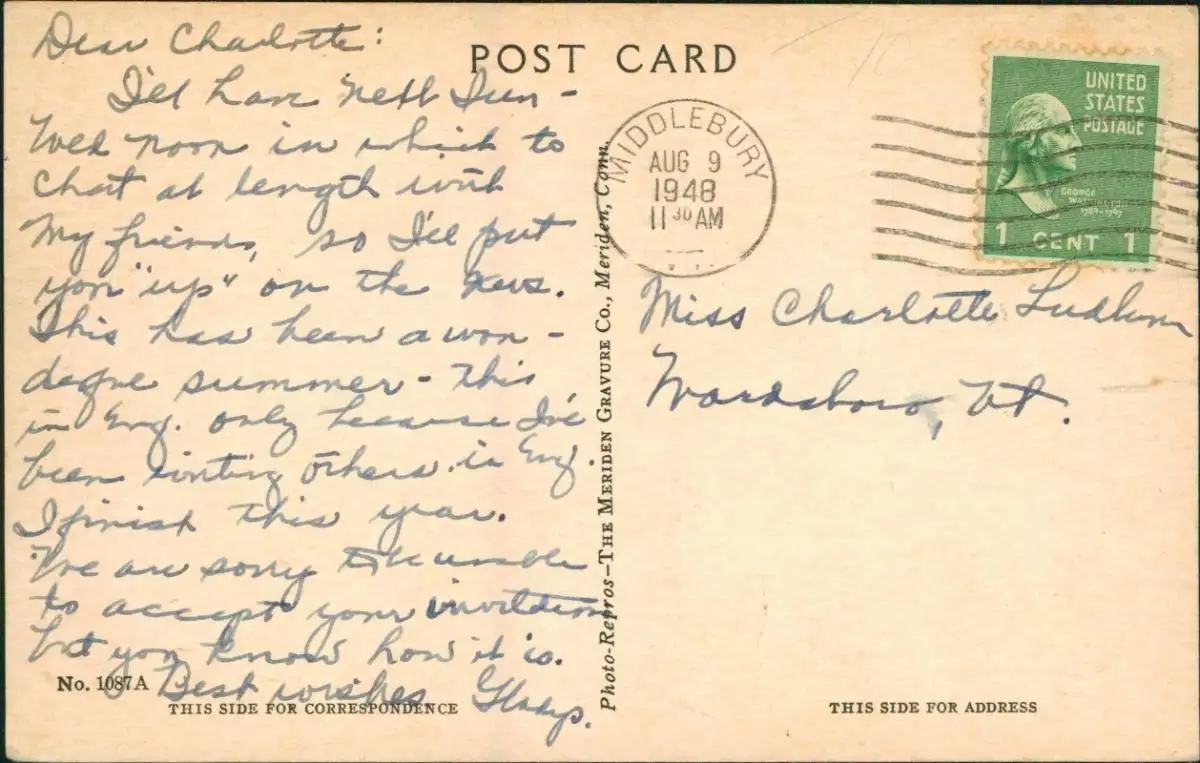 POST CARD
Dear Charlotte:
I'll have next Sun-
Wed noon in which to
chat at length with
my friends, so I'll put
you "up" on the news.
This has been a won-
summer - this
in Eng. only because I've
been writing others in Eng.
I finish this year.
We are sorry to be unable
to accept your invitation
but you know how it is.
Best wishes, Gladys.
No. 1087A
THIS SIDE FOR CORRESPONDENCE
Photo-Repros—THE MERIDEN GRAVURE CO., Meriden, Conn.
MIDDLEBURY
AUG 9
1948
11 30 AM
UNITED
STATES
POSTAGE
GEORGE
WASHINGTON
1789-1797
1 CENT 1
Miss Charlotte
Wardsboro, Vt.
THIS SIDE FOR ADDRESS